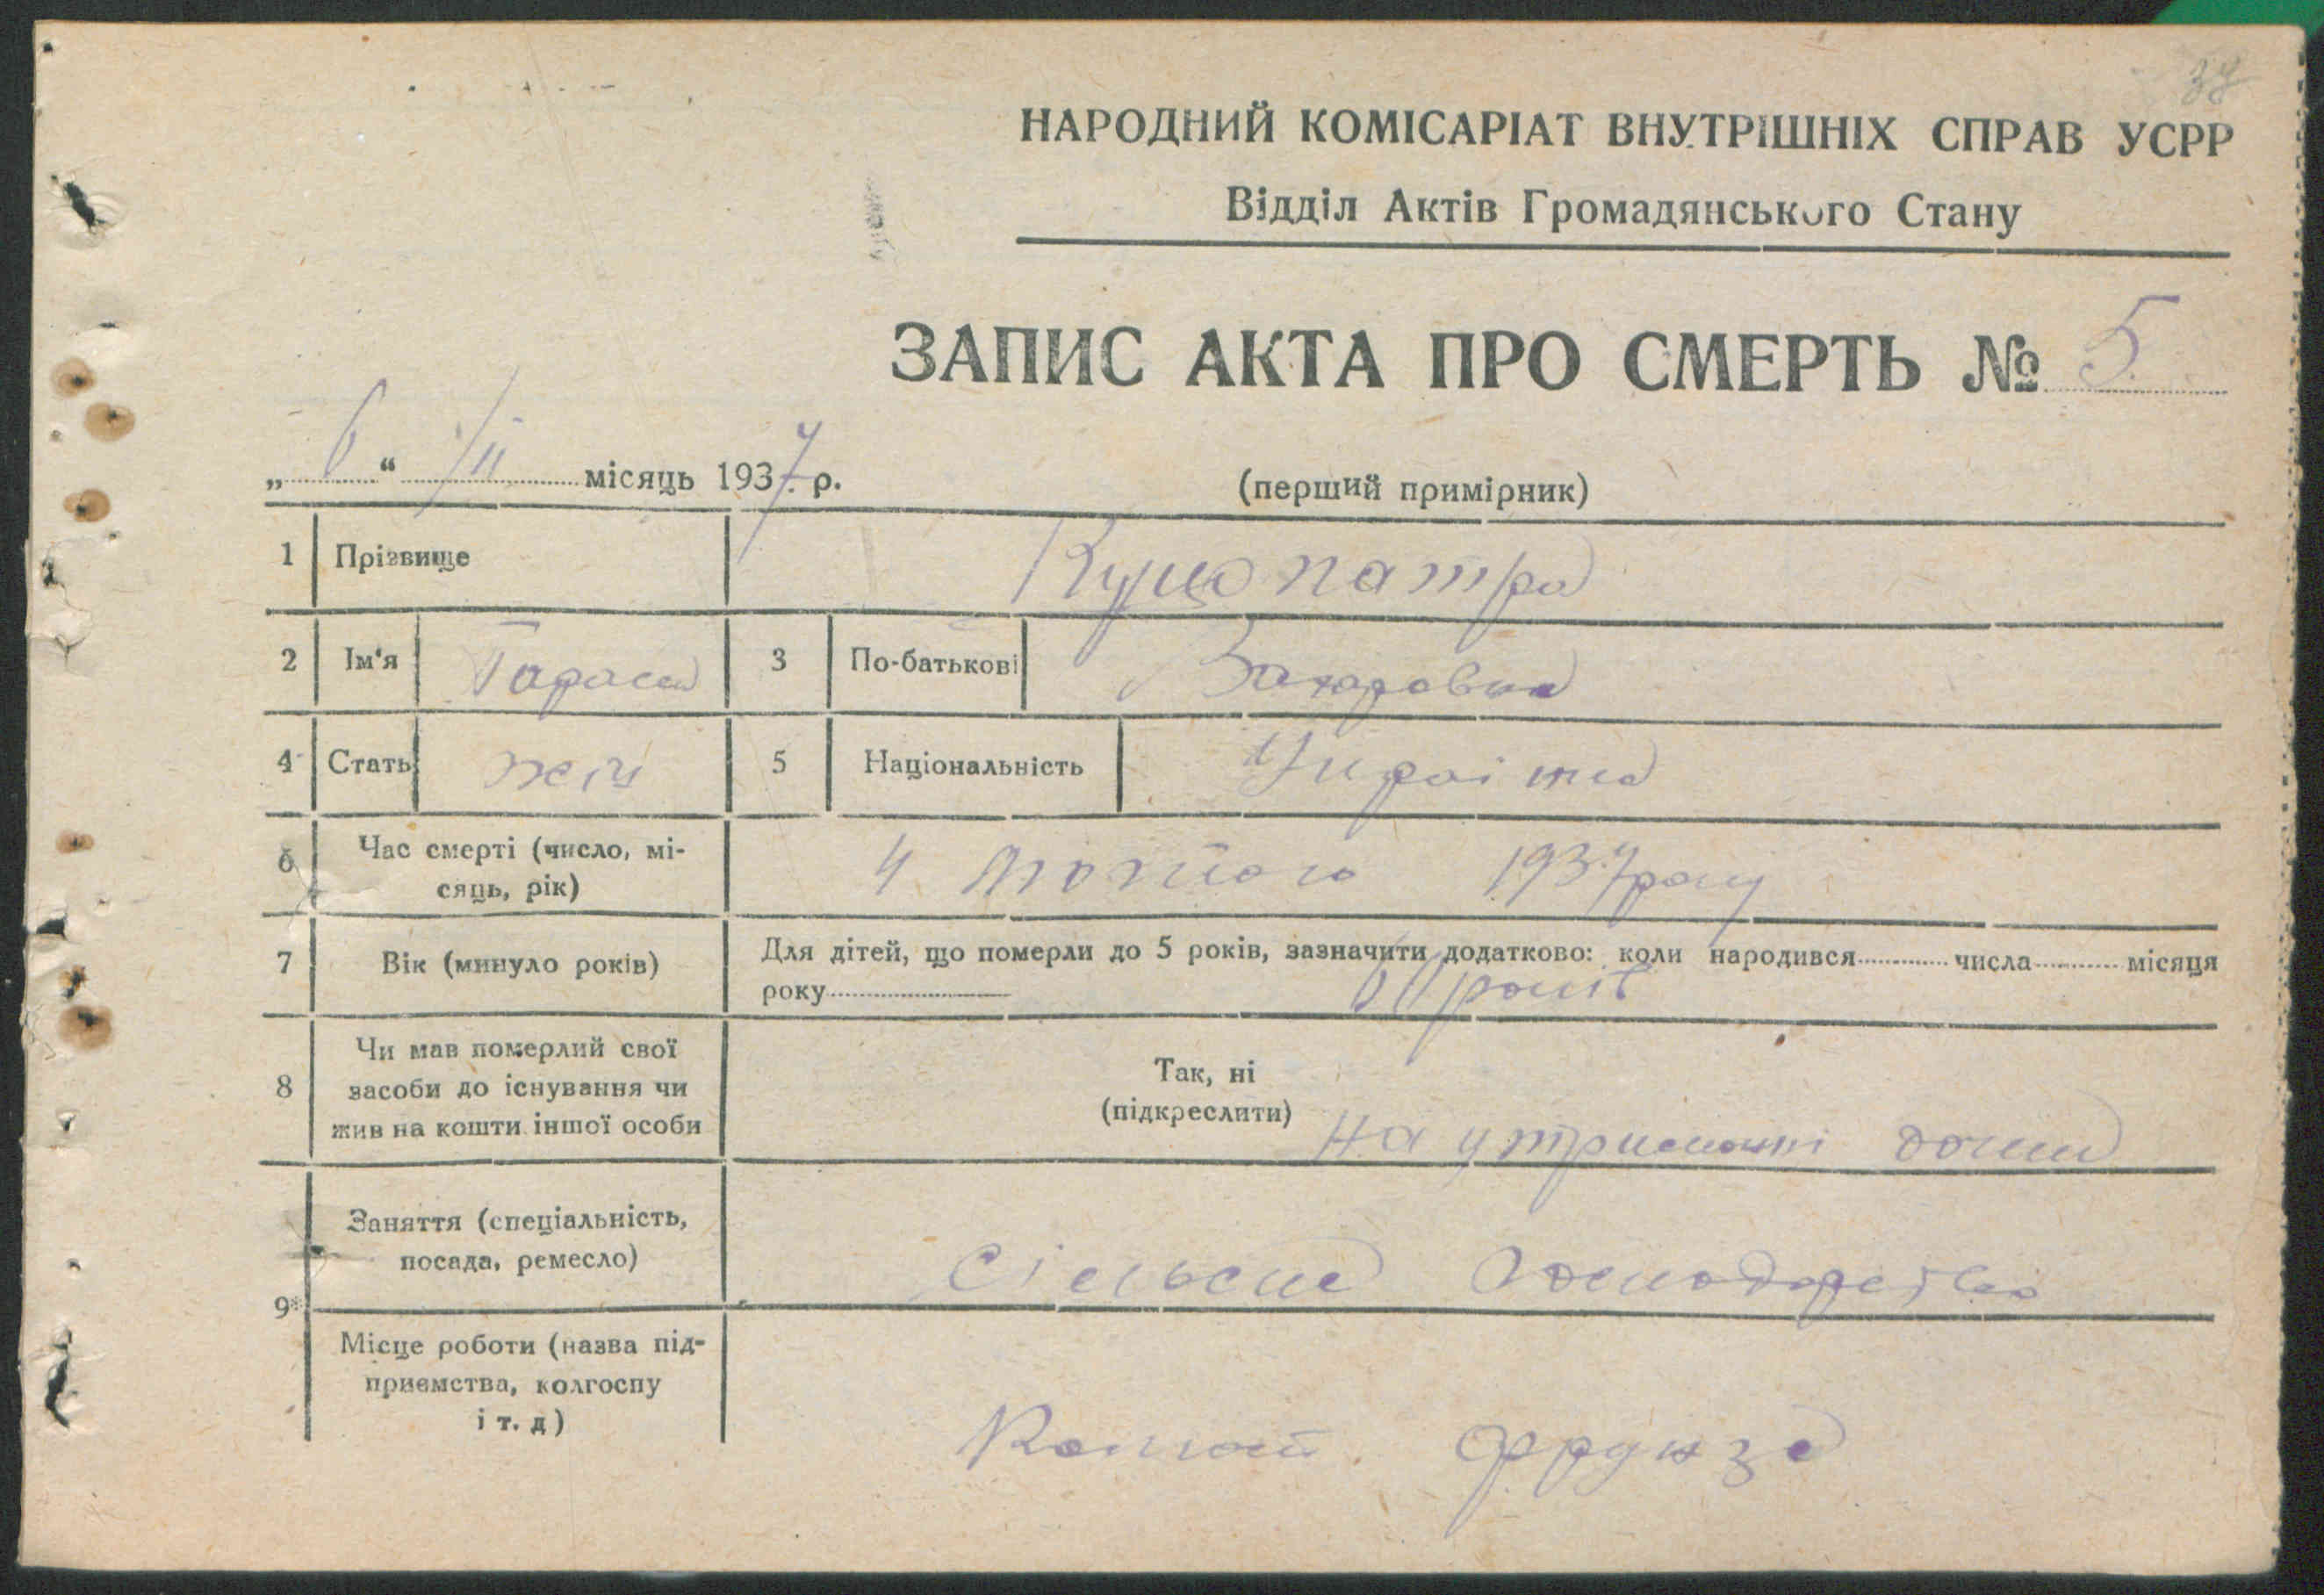 38
НАРОДНИЙ КОМІСАРІАТ ВНУТРІШНІХ СПРАВ УСРР
Відділ Актів Громадянського Стану
ЗАПИС АКТА ПРО СМЕРТЬ № 5
„ 6 “ /II місяць 1937 р.
(перший примірник)
1 Прізвище Куцопатра
2 Ім'я 3 По-батькові Захаровна
4 Стать жін 5 Національність Украінка
6 Час смерті (число, мі-
сяць, рік) 4 Лютого 1937 року
7 Вік (минуло років) Для дітей, що померли до 5 років, зазначити додатково: коли народився числа місяця
року років
8 Чи мав померлий свої
засоби до існування чи
жив на кошти іншої особи
Так, ні
(підкреслити) на утриманні дочки
9 Заняття (спеціальність,
посада, ремесло) Сільське господарство
Місце роботи (назва під-
приємства, колгоспу
і т. д) Колгосп Фрунзе